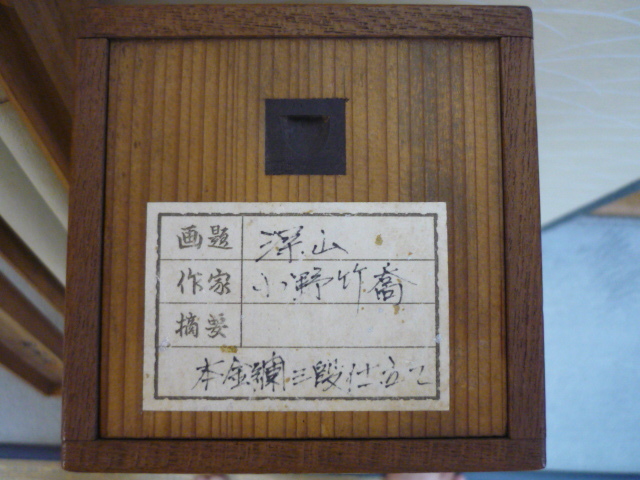 画題 深山
作家 小野竹喬
摘要
本金襴三段仕立て